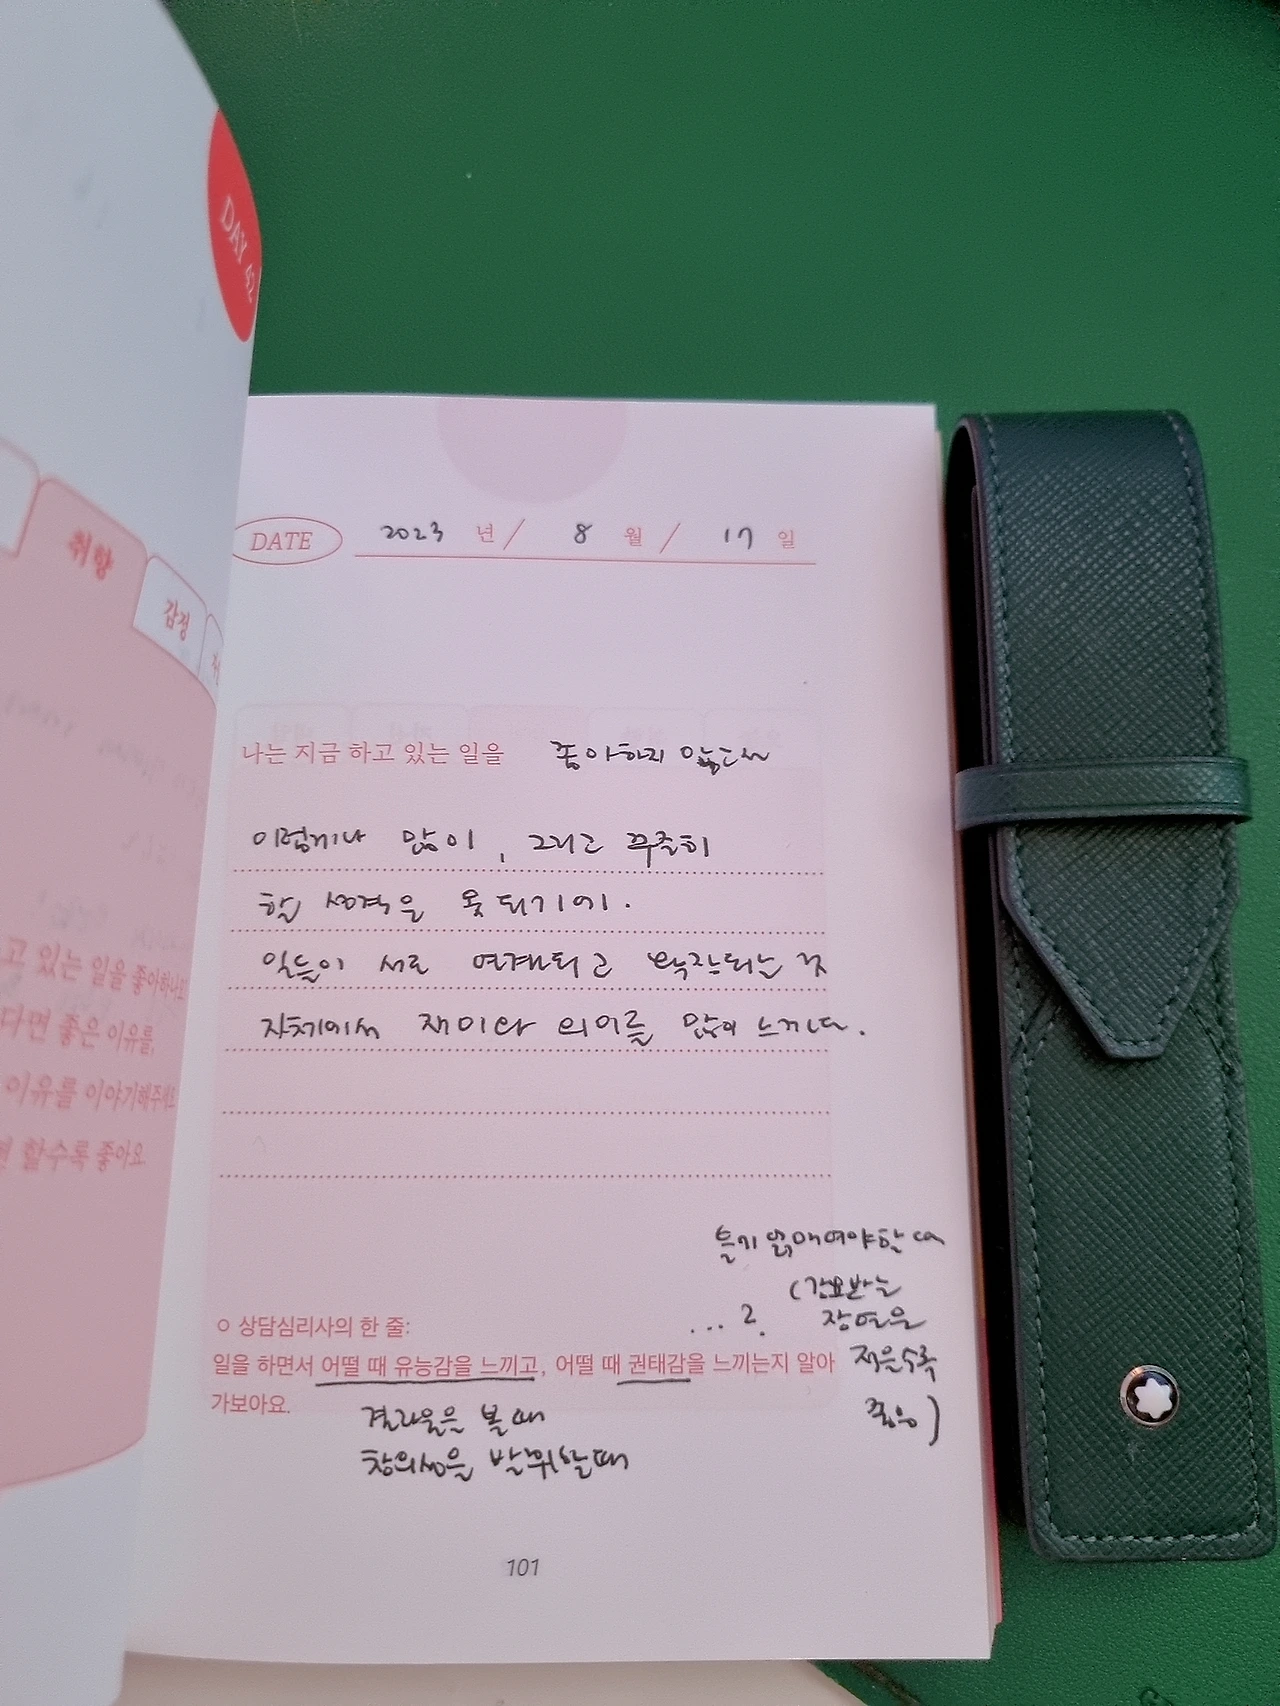 DAY 42
취향
감정
고 있는 일을 좋아하나요
다면 좋은 이유를,
이유를 이야기해주세요
할수록 좋아요
DATE 2023 년 / 8 월 / 17 일
나는 지금 하고 있는 일을 좋아하지 않고서
이렇게나 많이, 그리고 꾸준히
할 성격을 못 되기에.
일들이 서로 연계되고 되는 것
자체에서 재미와 의의를 많이 느끼다.
읽 할 때
(강요받는
... ?
장면은
적을수록
좋음)
○ 상담심리사의 한 줄:
일을 하면서 어떨 때 유능감을 느끼고, 어떨 때 권태감을 느끼는지 알아
가보아요.
결과물은 볼 때
창의성을 발휘할 때
101